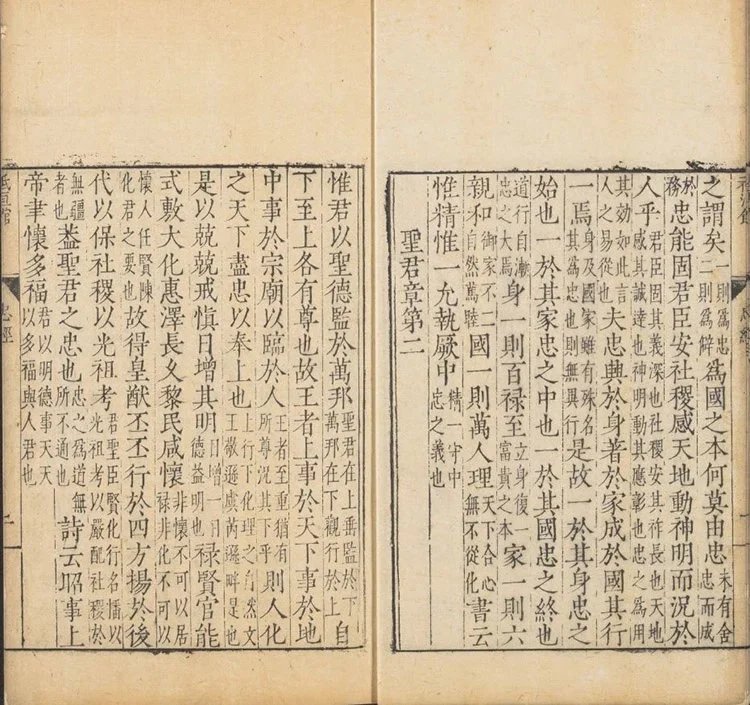 之謂矣一則為忠二則為僻為國之本何莫由忠未有舍忠而成
於務忠能固君臣安社稷感天地動神明而況於
人乎君臣固其義深也社稷安其祚長也天地感其誠達也神明動其應彰也忠之為用
其効如此言人之易從也夫忠興於身著於家成於國其行
一焉身及國家雖有殊名其為忠也則無異行是故一於其身忠之
始也一於其家忠之中也一於其國忠之終也
道行自漸忠之大焉身一則百祿至立身復一富貴之本家一則六
親和御家不二自然萬睦國一則萬人理天下合心無不從化書云
惟精惟一允執厥中精一守中忠之義也
聖君章第二
惟君以聖德監於萬邦聖君在上垂監於下萬邦在下觀行於上自
下至上各有尊也故王者上事於天下事於地
中事於宗廟以臨於人王者至重猶有所尊況其下乎則人化
之天下盡忠以奉上也上行下化理之自然文王敬遜虞芮遜畔是也
是以兢兢戒慎日增其明日增一日德益明也祿賢官能
式敷大化惠澤長久黎民咸懷非懷不可以居祿非化不可以
懷人任賢陳化君之要也故得皇猷丕丕行於四方揚於後
代以保社稷以光祖考君聖臣賢化行名播以光祖考以嚴配社稷於
無疆者也蓋聖君之忠也忠之為道無所不通也詩云昭事上
帝聿懷多福君以明德事天天以多福與人君也
忠經
二